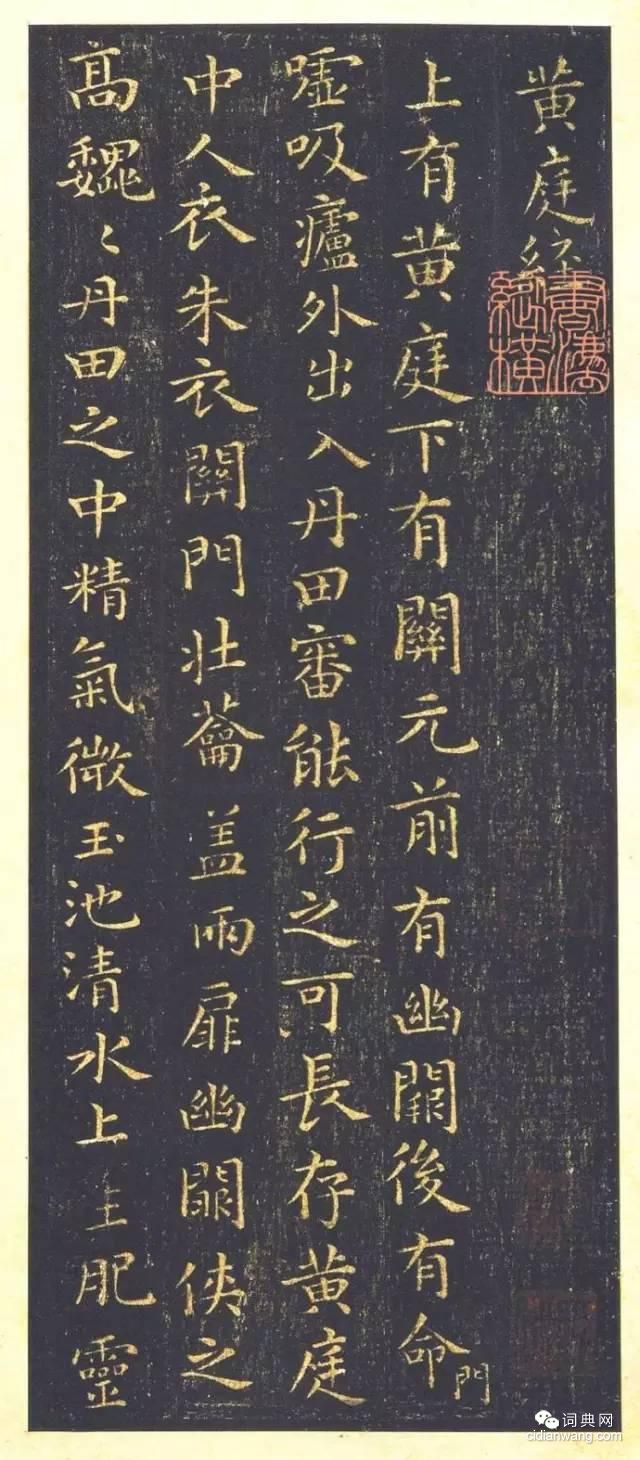 黄庭經
上有黄庭下有關元前有幽闕後有命門
嘘吸廬外出入丹田審能行之可長存黄庭
中人衣朱衣關門壯蘥盖兩扉幽闕侠之
高魏〻丹田之中精氣微玉池清水上生肥靈
词典网
cidianwang.com